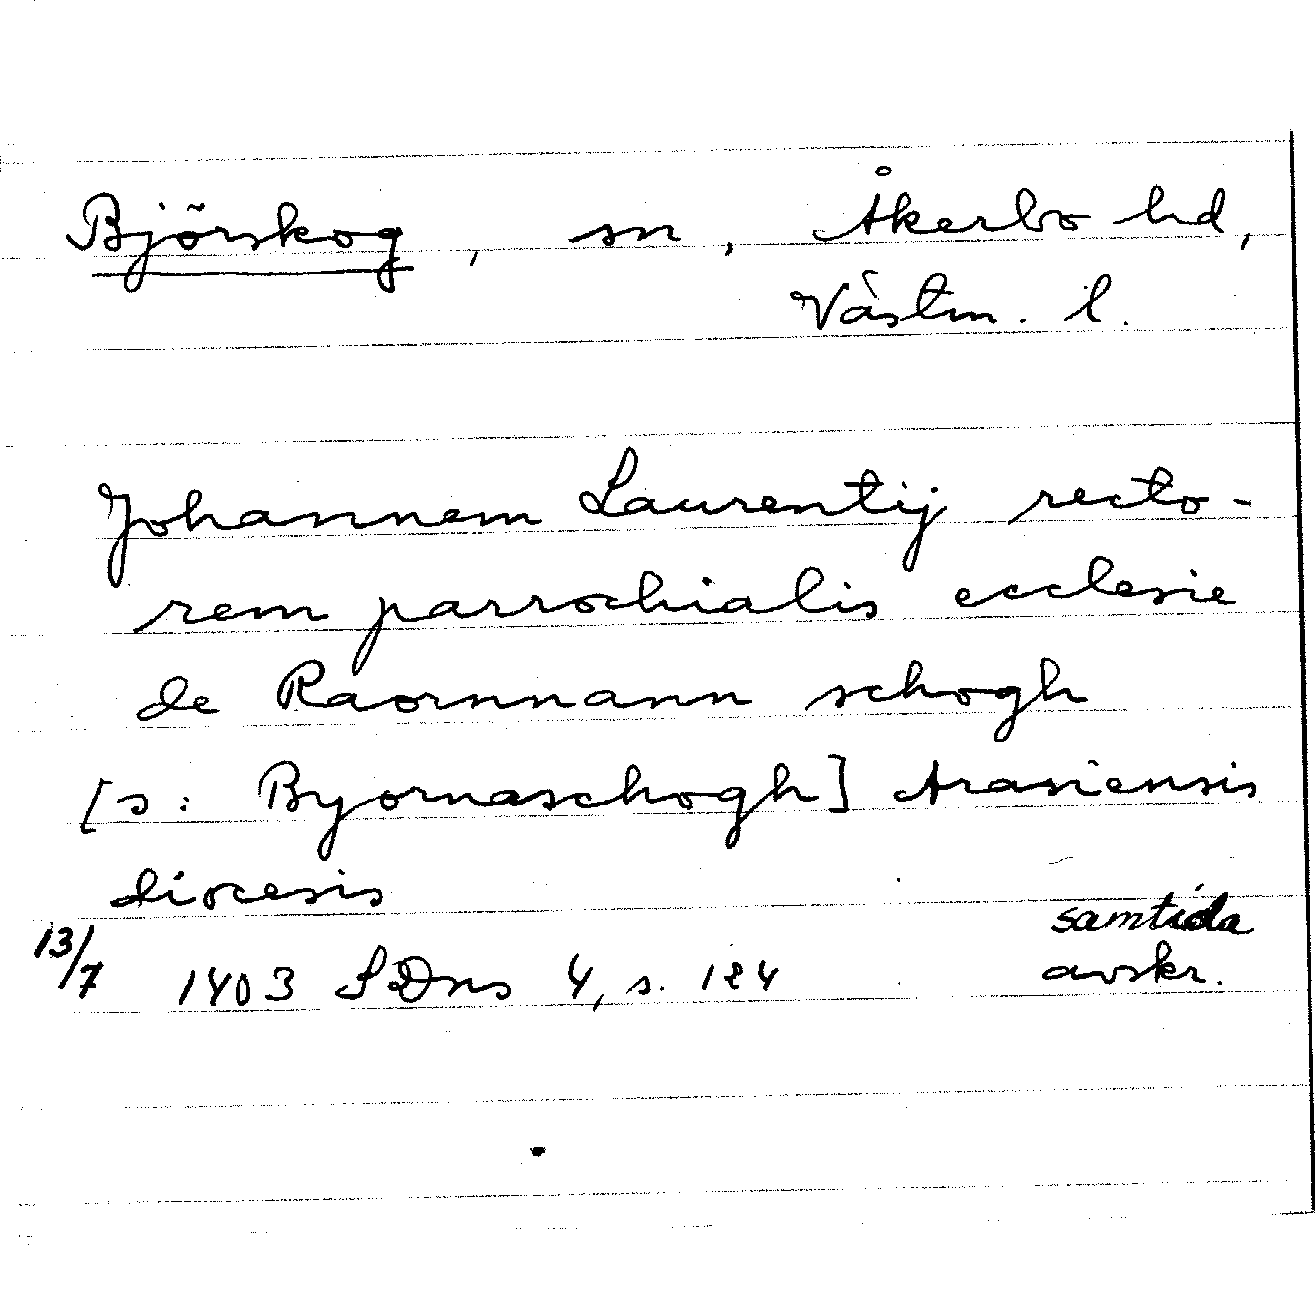 Björskog, sn, Åkerbo hd,
Västm. l.
Johannem Laurentij recto-
rem parrochialis ecclesie
de Raornnann schogh
[s: Byornaschogh] Arasiensis
diocesis
samtida
13/7 1403 SDns 4, s. 124 avskr.